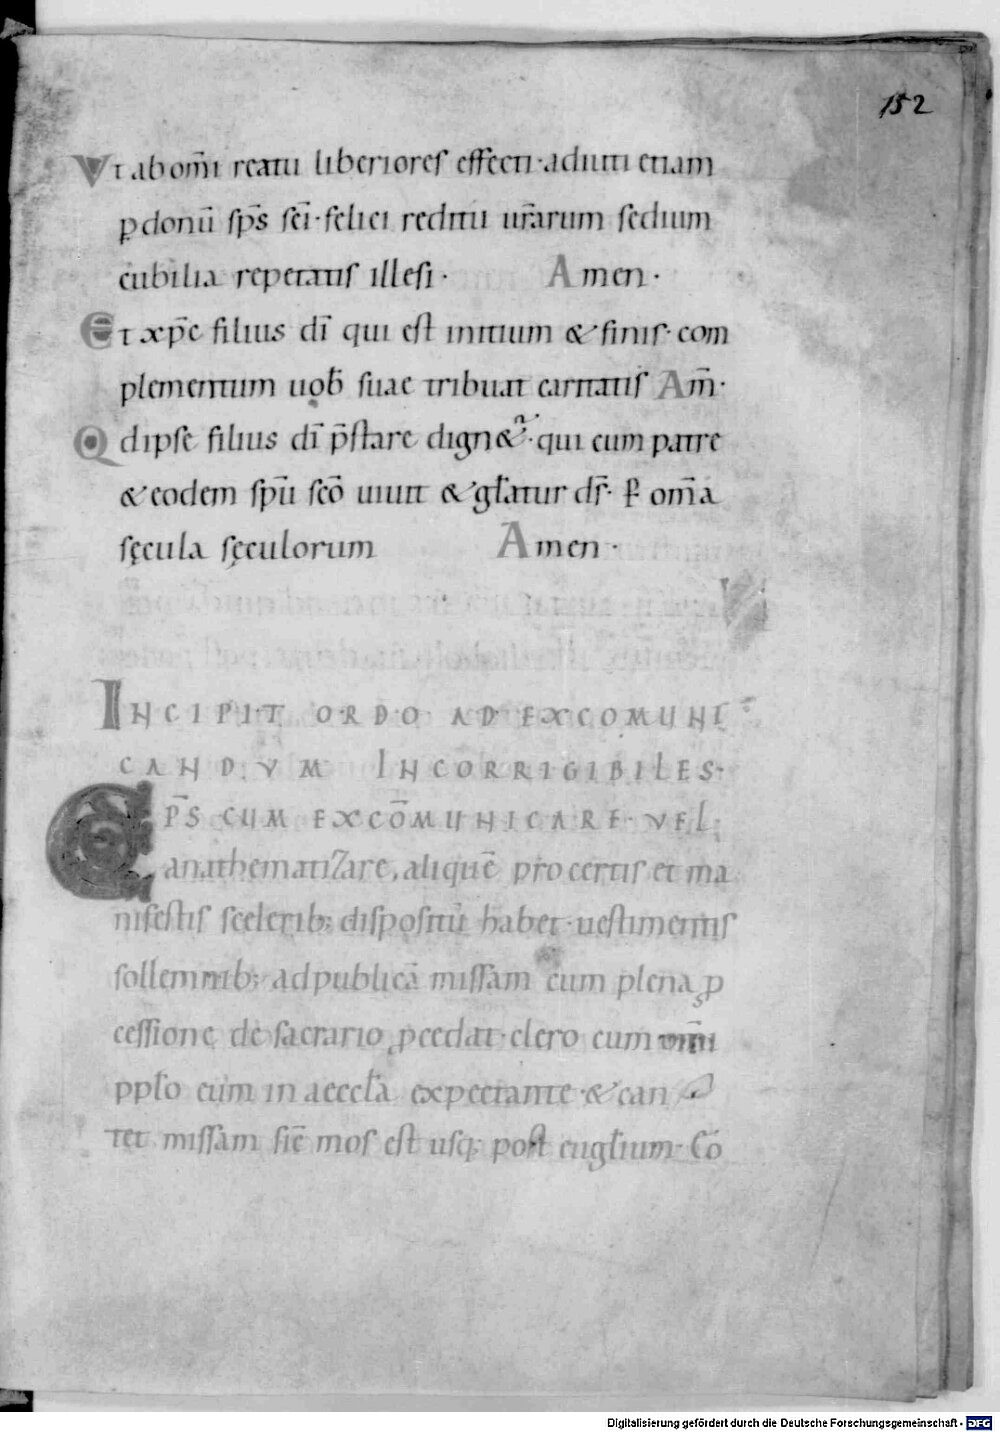 152
Vt ab om̅i reatu liberiores effecti · aduiti etiam
p̱donū sp̅s sc̅i · felici reditu ur̅arum sedium
cubilia repetatis illesi · Amen ·
Et xp̅c filius dī qui est initium & finis · com
plementum uob̅ suae tribuat caritatis Am̅ ·
Qd ipse filius dī p̅stare dign&ur · qui cum patre
& eodem spū scō uiuit & gl̅atur ds̅ · ꝑ om̅a
sęcula sęculorum Amen ·
INCIPIT ORDO AD EXCOMUNI
CANDVM INCORRIGIBILES ·
EP̅S CUM EXCO̅MUNICARE · VEL
anathematizare, aliquē pro certis et ma
nifestis scelerib; dispositū habet · uestimentis
sollemnib; ad publicā missam cum plena ꝓ
cessione de sacrario ꝓcedat · clero cum om̅i
pp̅lo eum in aeccl̅a expectante · & can
tet missam sic̅ mos est usq; post eugl̅ium · Cō
Digitalisierung gefördert durch die Deutsche Forschungsgemeinschaft - DFG